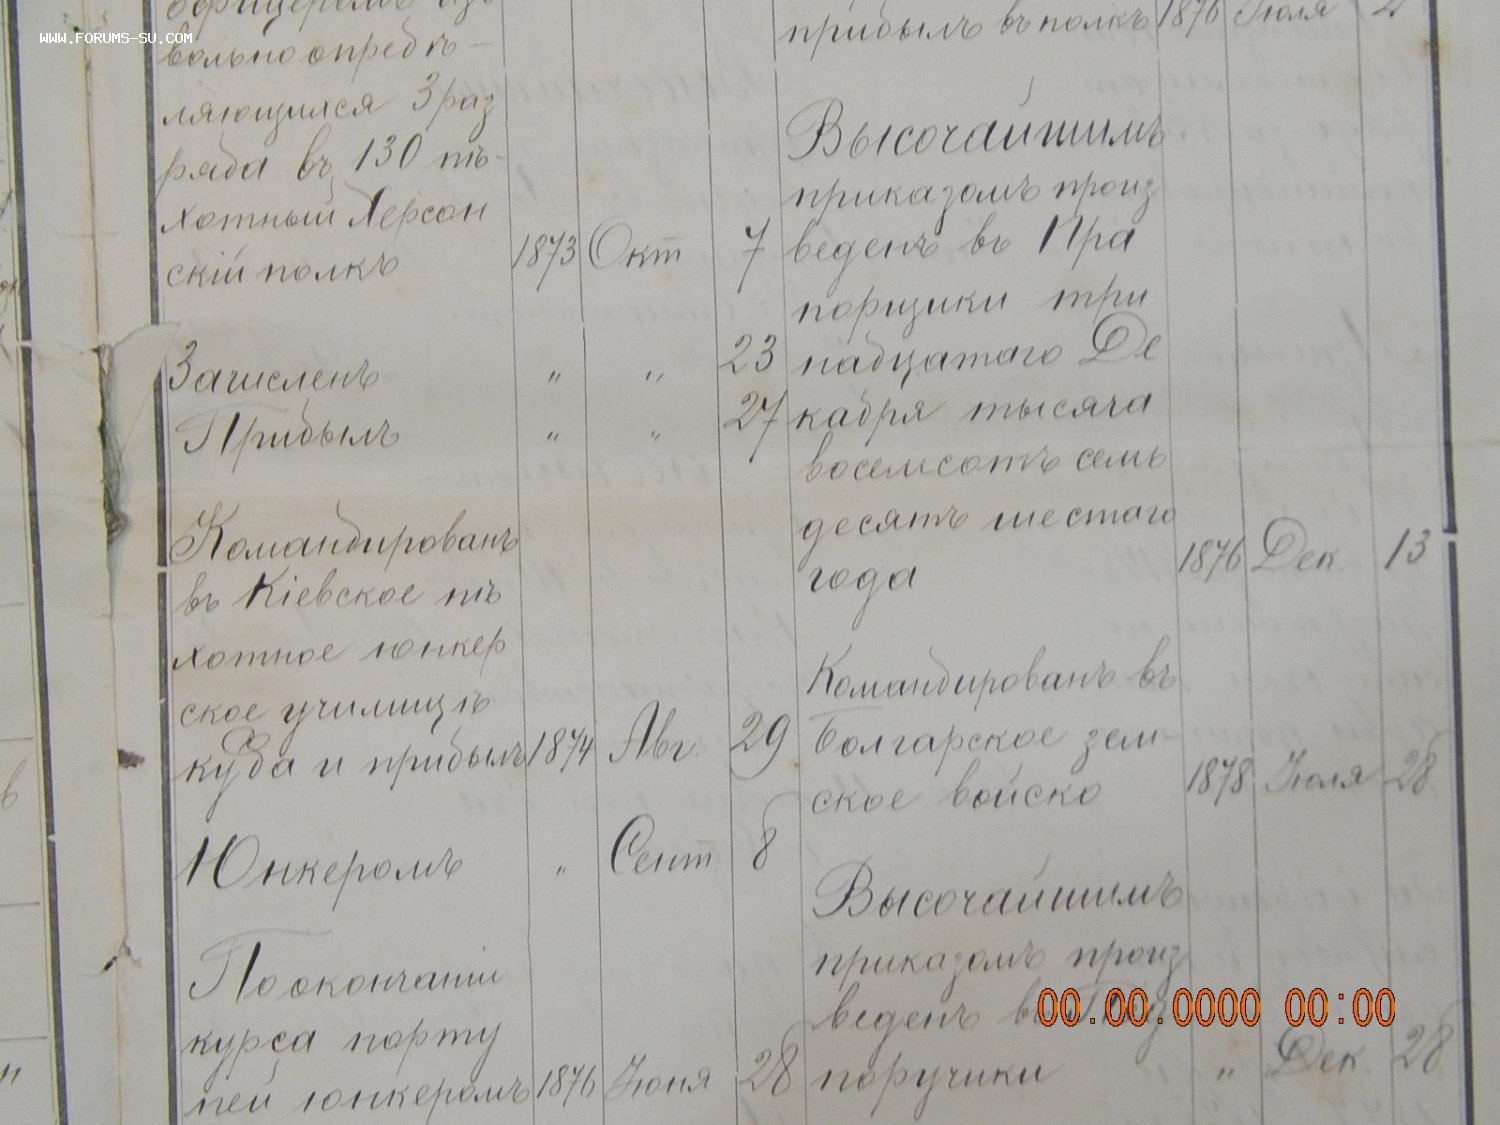 WWW.FORUMS-SU.COM
офицеромъ изъ
вольноопредѣ-
ляющихся 3 раз
ряда въ 130 пѣ-
хотный Херсон
скій полкъ 1873 Окт 7
Зачисленъ " " 23
Прибылъ " " 27
Командированъ
въ Кіевское пѣ
хотное юнкер
ское училище
куда и прибылъ 1874 Авг. 29
Юнкеромъ " Сент. 8
По окончаніи
курса порту
пей юнкеромъ 1876 Іюня 28
прибылъ въ полкъ 1876 Іюля 2
Высочайшимъ
приказомъ произ
веденъ въ Пра
порщики три
надцатаго Де
кабря тысяча
восемсотъ семь
десятъ шестого
года 1876 Дек. 13
Командированъ въ
Болгарское зем-
ское войско 1878 Іюля 28
Высочайшимъ
приказомъ произ
веденъ въ Под
поручики " Дек. 28
00.00.0000 00:00